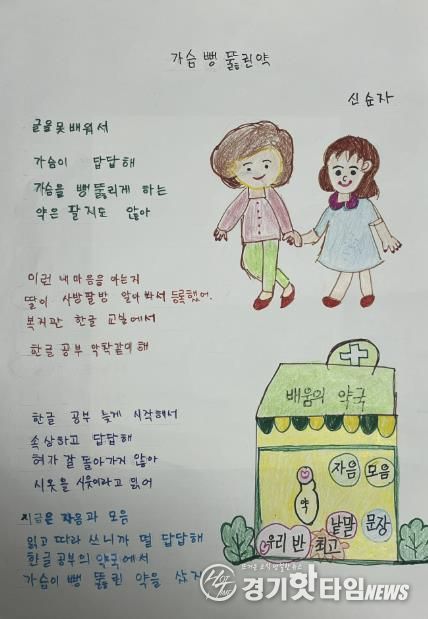 가슴 뻥 뚫린 약
신순자
글을 못 배워서
가슴이 답답해
가슴을 뻥 뚫리게 하는
약은 팔지도 않아
이런 내 마음을 아는지
딸이 사방팔방 알아봐서 등록했어.
복지관 한글 교실에서
한글 공부 악착같이 해
한글 공부 늦게 시작해서
속상하고 답답해
혀가 잘 돌아가지 않아
시옷을 시옷이라고 읽어
지금은 자음과 모음
읽고 따라 쓰니까 덜 답답해
한글 공부의 약국에서
가슴이 뻥 뚫린 약을
배움의 약국
자음
모음
약
낱말
문장
우리 반
최고
HOT TIME
경기핫타임NEWS